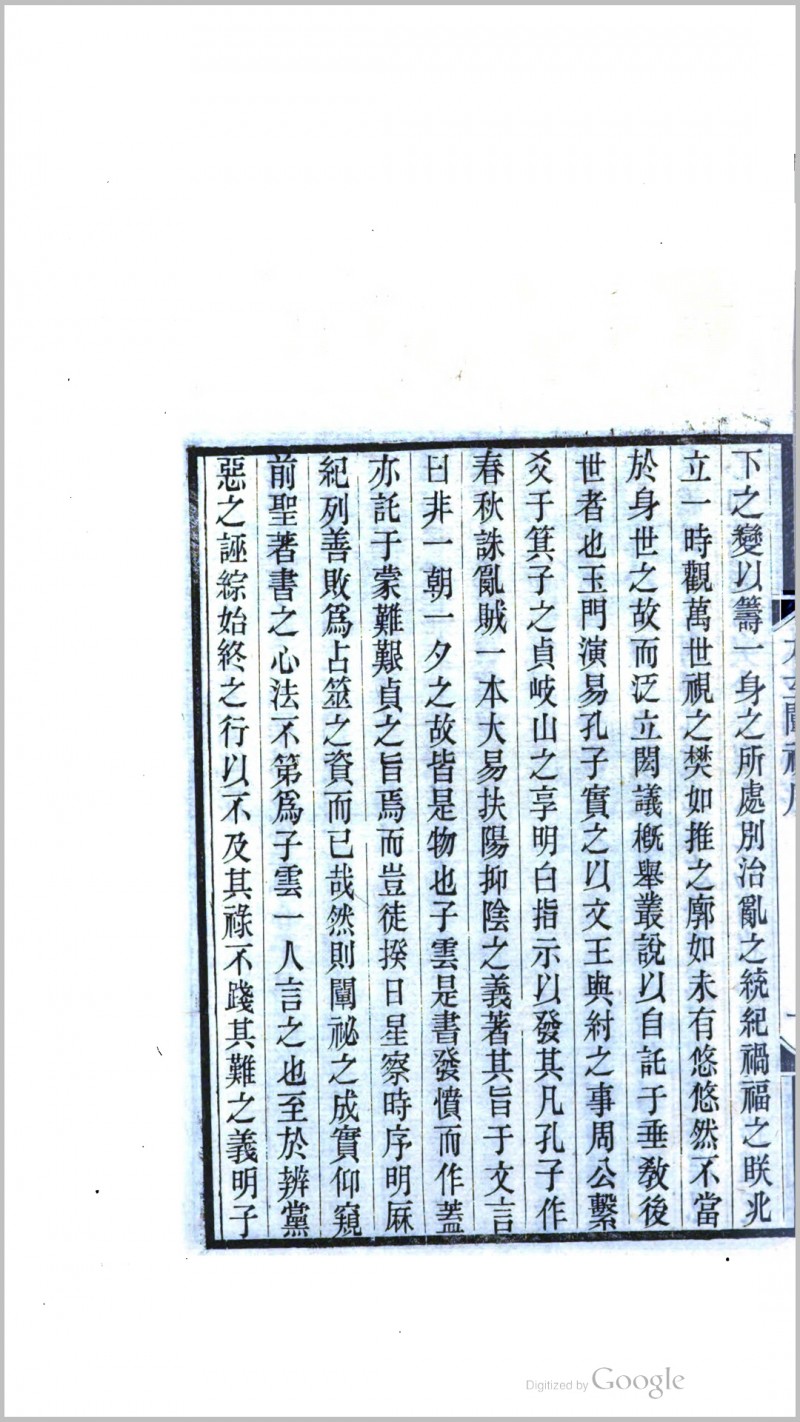 下之變以籌一身之所處別治亂之統紀禍福之眹兆
立一時觀萬世視之樊如推之廓如未有悠悠然不當
於身世之故而泛立閎議槪舉叢說以自託于垂敎後
世者也玉門演易孔子實之以文王與紂之事周公繫
爻于箕子之貞岐山之享明白指示以發其凡孔子作
春秋誅亂賊一本大易扶陽抑陰之義著其旨于文言
曰非一朝一夕之故皆是物也子雲是書發憤而作蓋
亦託于蒙難艱貞之旨焉而豈徒揆日星察時序明厤
紀列善敗爲占筮之資而已哉然則闡祕之成實仰窺
前聖著書之心法不第爲子雲一人言之也至於辨黨
惡之誣綜始終之行以不及其祿不踐其難之義明子
Digitized by Google